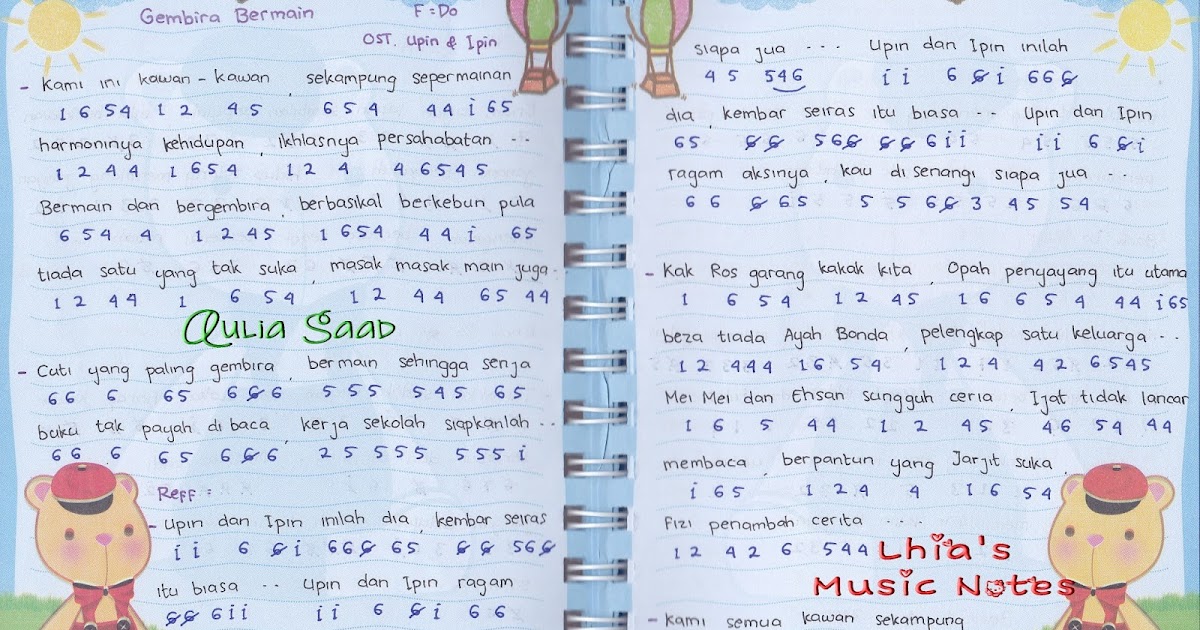 Gembira Bermain F = Do
OST. Upin & Ipin
- Kami ini kawan - kawan , sekampung sepermainan
1 6 54 1 2 4 5 6 5 4 4 4 i 6 5
harmoninya kehidupan , Ikhlasnya persahabatan . .
1 2 4 4 1 6 5 4 1 2 4 4 6 5 4 5
Bermain dan bergembira , berbasikal berkebun pula
6 5 4 4 1 2 4 5 1 6 5 4 4 4 i 6 5
tiada satu yang tak suka , masak masak main juga .
1 2 4 4 1 6 5 4 1 2 4 4 6 5 4 4
Qulia Saad
- Cuti yang paling gembira , bermain sehingga senja
6 6 6 6 5 6 6̸ 6 5 5 5 5 4 5 6 5
buku tak payah di baca , kerja sekolah siapkanlah . .
6 6 6 6 5 6 6̸ 6 2 5 5 5 5 5 5 5 i
Reff :
- Upin dan Ipin inilah dia , kembar seiras
i i 6 6̸ i 6 6 6̸ 6 5 6̸ 6̸ 5 6 6̸
itu biasa . . Upin dan Ipin ragam
6̸ 6̸ 6 i i i i 6 6̸ i 6 6
siapa jua . . . Upin dan Ipin inilah
4 5 5 4 6 i i 6 6̸ i 6 6 6̸
dia , kembar seiras itu biasa . . Upin dan Ipin
6 5 6̸ 6̸ 5 6 6̸ 6̸ 6̸ 6 i i i i 6 6̸ i
ragam aksinya , kau di senangi siapa jua . .
6 6 6̸ 6 5 5 5 6 6̸ 3 4 5 5 4
- Kak Ros garang kakak kita , Opah penyayang itu utama
1 6 5 4 1 2 4 5 1 6 6 5 4 4 4 i 6 5
beza tiada Ayah Bonda , pelengkap satu keluarga . .
1 2 4 4 4 1 6 5 4 1 2 4 4 2 6 5 4 5
Mei Mei dan Ehsan sungguh ceria , Ijat tidak lancar
1 6 5 4 4 1 2 4 5 4 6 5 4 4 4
membaca , berpantun yang Jarjit suka ,
i 6 5 1 2 4 4 1 6 5 4
Fizi penambah cerita . . . .
1 2 4 2 6 5 4 4
Lhia's
Music Notes
- Kami semua kawan sekampung